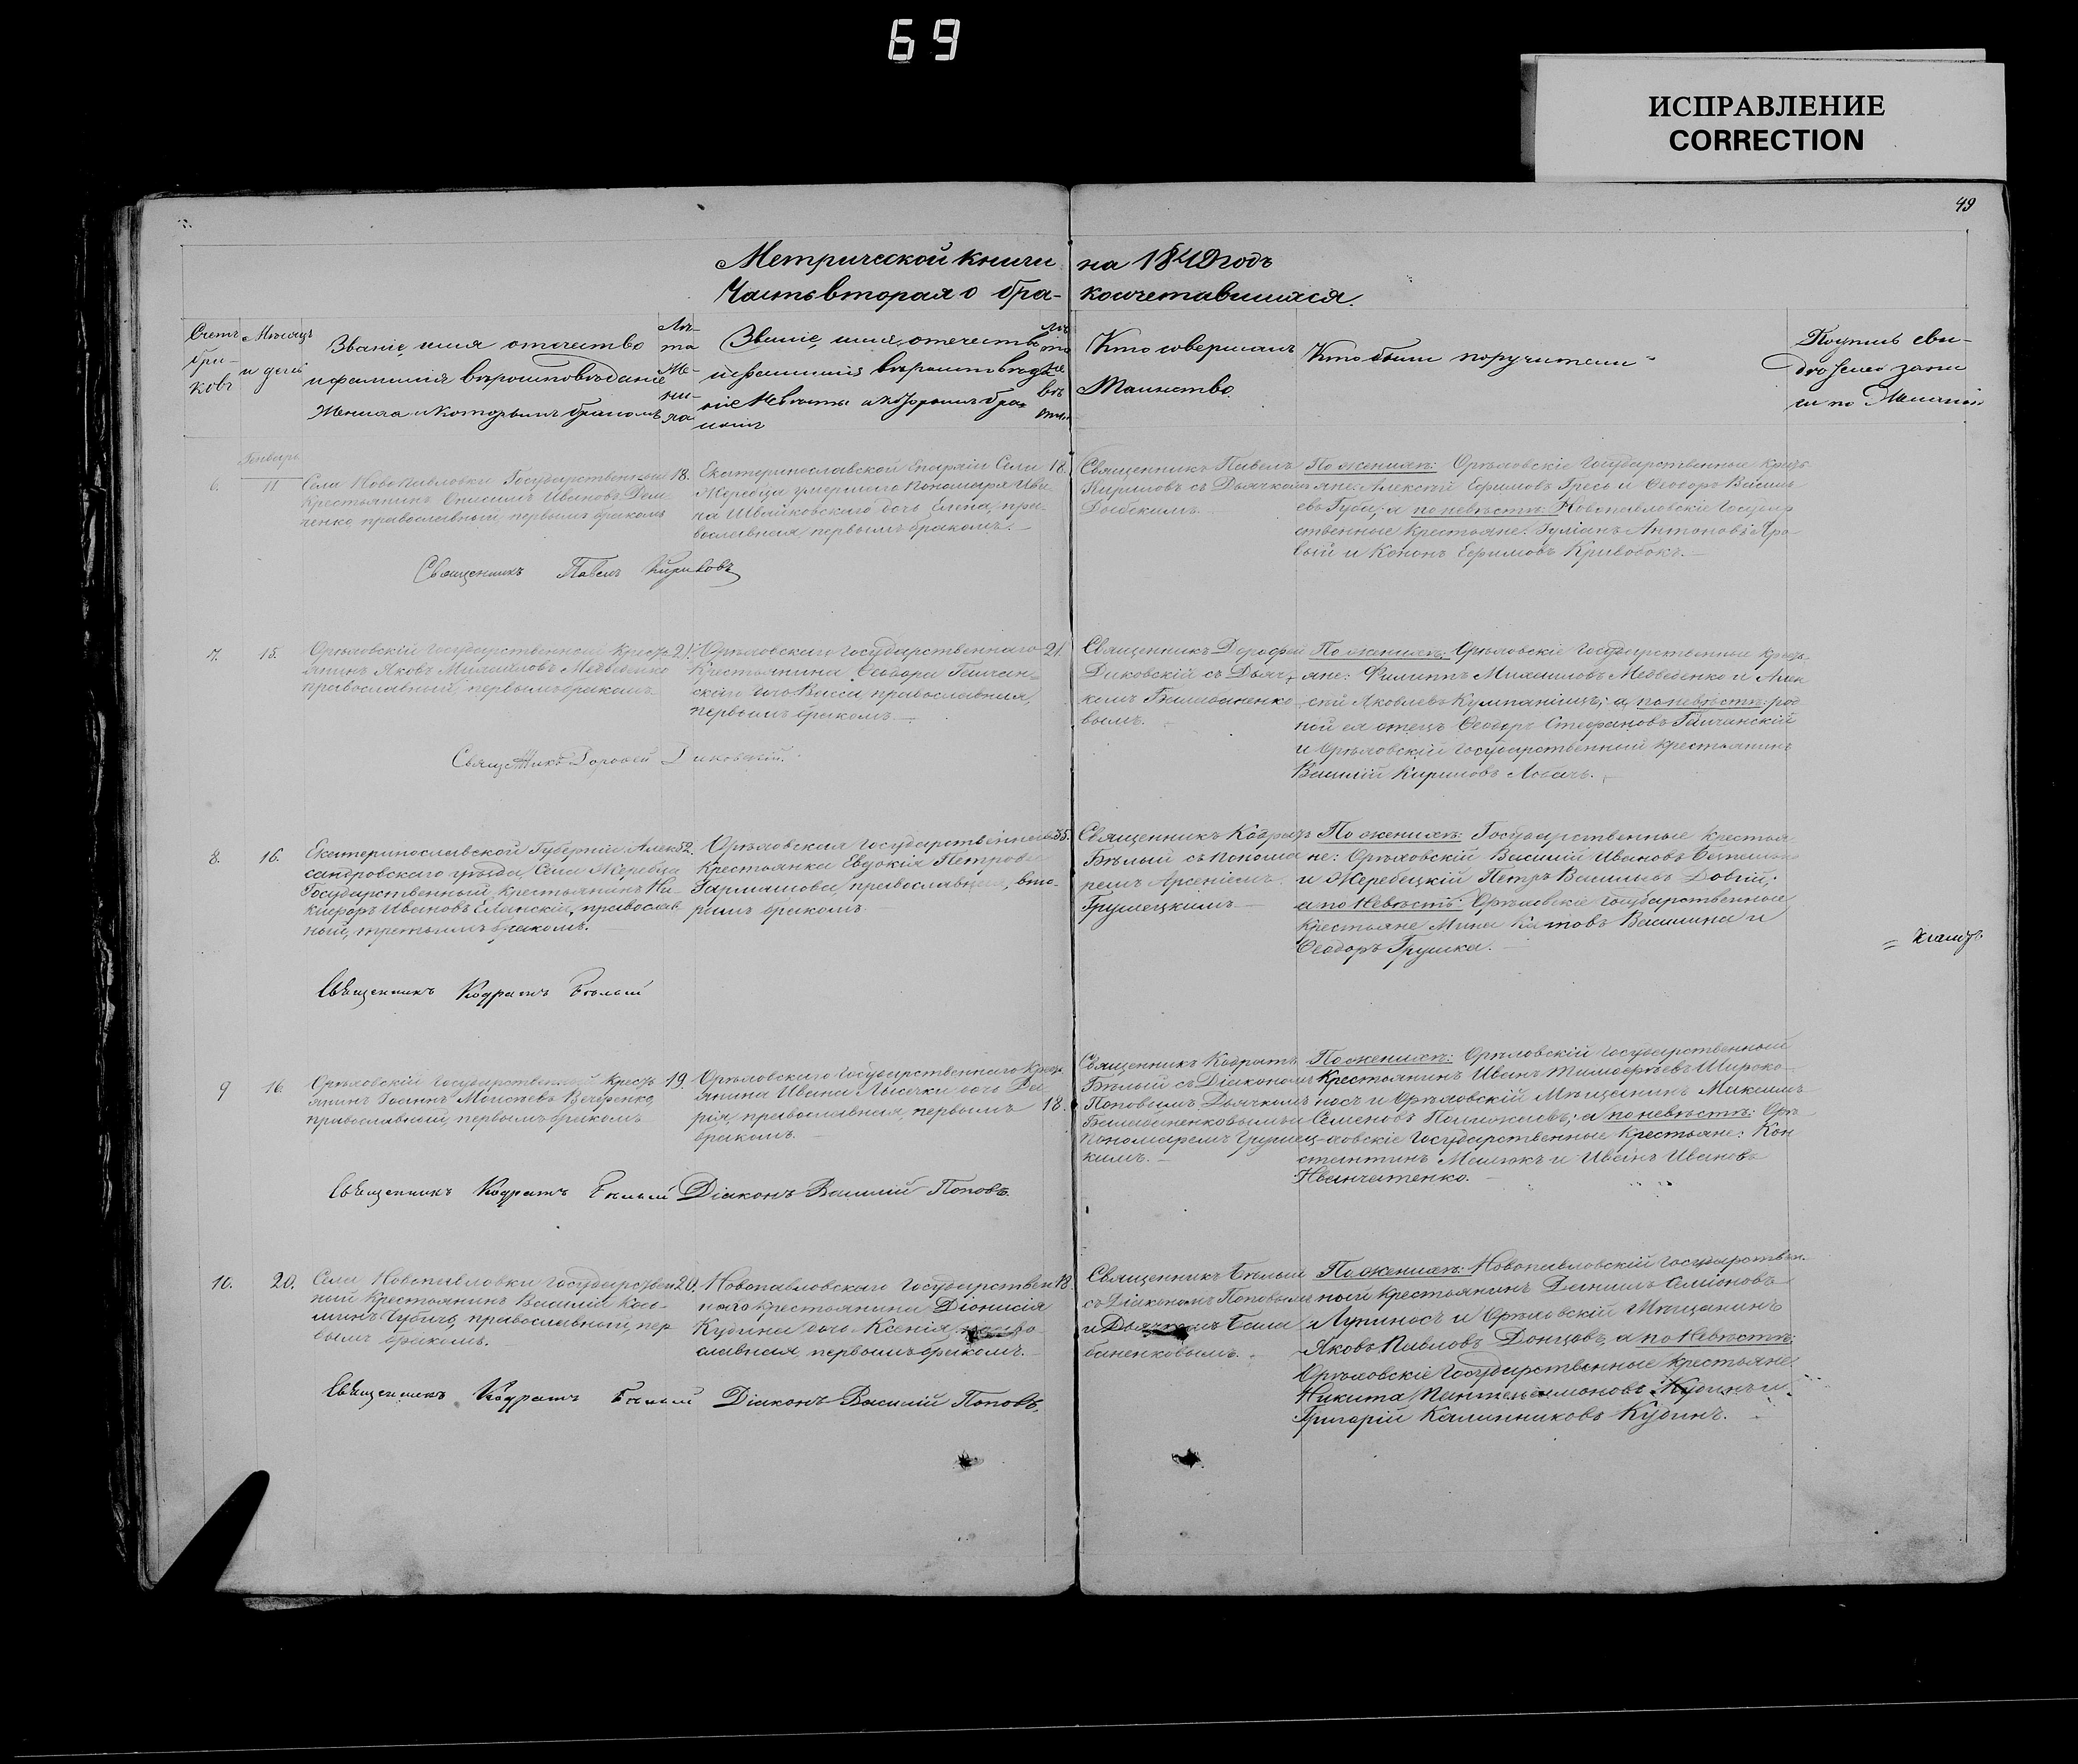 69
ИСПРАВЛЕНИЕ
CORRECTION
49
Метрической книги на 1849 годъ
Часть вторая о бра- косочетавшихся.
Счетъ
бра-
ковъ
Мѣсяцъ
и день
Званіе, имя отечество
и фамилія вѣроисповѣданіе
Жениха и которымъ бракомъ
Лѣ-
та
Же-
ни-
ха
Званіе, имя, отечество
и фамилія вѣроисповѣда
ніе Невѣсты и которымъ бра-
комъ
Кто совершалъ
Таинство
Кто были поручители
Подпись сви-
Генварь
6.
11
Села Новопавловки Государственный
Крестьянинъ Онисимъ Ивановъ
ченко православный, первымъ бракомъ
18.
Екатеринославской Епархіи Села
Жеребца умершаго Пономаря Ива-
на Швайковскаго дочь Елена, пра-
вославная, первымъ бракомъ.
18.
Священникъ Павелъ
Кириловъ съ Дьячкомъ
По женихѣ: Орѣховскіе Государственные Кресть-
яне: Алексѣй Ефимовъ Гресь и Ѳеодоръ Василь-
евъ Губа; а по невѣстѣ: Новопавловскіе Государ
ственные Крестьяне: Антоновъ
и Кононъ Ефимовъ Кривобокъ.
Священникъ Павелъ Кириловъ
7.
15.
Орѣховскій Государственный Кресть-
янинъ Яковъ Михайловъ Медведенко
православный, первымъ бракомъ
21.
Орѣховскаго Государственнаго
Крестьянина Ѳеодора Галчан-
скаго дочь Васса, православная,
первымъ бракомъ
21.
Священникъ Дороѳей
Диковскій съ Дьяч-
комъ Балабаненко-
вымъ.
По женихѣ: Орѣховскіе Государственные Кресть-
яне: Филиппъ Михайловъ Медведенко и Алек
сѣй Яковлевъ Кумпаніецъ; а по невѣстѣ: род-
ной ея отецъ Ѳеодоръ Стефановъ Галчанскій
и Орѣховскій Государственный Крестьянинъ
Василій Кириловъ Лобачъ.
Священникъ Дороѳей Диковскій.
8.
16.
Екатеринославской Губерніи Алек-
сандровскаго уѣзда, Села Жеребца
Государственный Крестьянинъ Ни-
кифоръ Ивановъ Еланскій, православ
ный, третьимъ бракомъ.
52.
Орѣховская Государственная
Крестьянка Евдокія Петрова
Гармашова, православная, вто-
рымъ бракомъ
35.
Священникъ Кодратъ
Бѣлый съ Понома-
ремъ Арсеніемъ
Грушецкимъ
По женихѣ: Государственные Крестья-
не: Орѣховскій Василій Ивановъ
и Жеребецкій Петръ Васильевъ Довгій;
а по Невѣстѣ: Орѣховскіе Государственные
Крестьяне Мина Василина и
Ѳеодоръ Грушка.
Священникъ Кодратъ Бѣлый
9
16.
Орѣховскій Государственный Кресть-
янинъ Іоаннъ Моисеевъ Вечеренко,
православный, первымъ бракомъ
19.
Орѣховскаго Государственнаго Кресть-
янина Ивана Лисички дочь Да-
рія, православная, первымъ
бракомъ.
18.
Священникъ Кодратъ
Бѣлый съ Діакономъ
Поповымъ Дьячкомъ
Балабаненковымъ и
Пономаремъ Грушец-
кимъ.
По женихѣ: Орѣховскій Государственный
Крестьянинъ Иванъ Тимоѳеевъ Широко-
носъ и Орѣховскій Мѣщанинъ Максимъ
Семеновъ а по невѣстѣ: Орѣ-
ховскіе Государственные Крестьяне: Кон
стантинъ Малюкъ и Иванъ Ивановъ
Иванчатенко.
Священникъ Кодратъ Бѣлый Діаконъ Василій Поповъ.
10.
20.
Села Новопавловки Государствен-
ный Крестьянинъ Василій Косьминъ православный, пер
вымъ бракомъ.
20.
Новопавловскаго Государствен
наго Крестьянина Діонисія
Кудина дочь Ксенія, право-
славная, первымъ бракомъ.
18.
Священникъ Бѣлый
съ Діакономъ Поповымъ
и Дьячкомъ Бала
баненковымъ.
По женихѣ: Новопавловскій Государствен-
ный Крестьянинъ Даніилъ Симоновъ
Лупиносъ и Орѣховскій Мѣщанинъ
Яковъ Павловъ Донцовъ, а по Невѣстѣ:
Орѣховскіе Государственные Крестьяне
Никита Пантелеимоновъ Кудинъ и
Григорій Калинниковъ Кудинъ.
Священникъ Кодратъ Бѣлый Діаконъ Василій Поповъ.